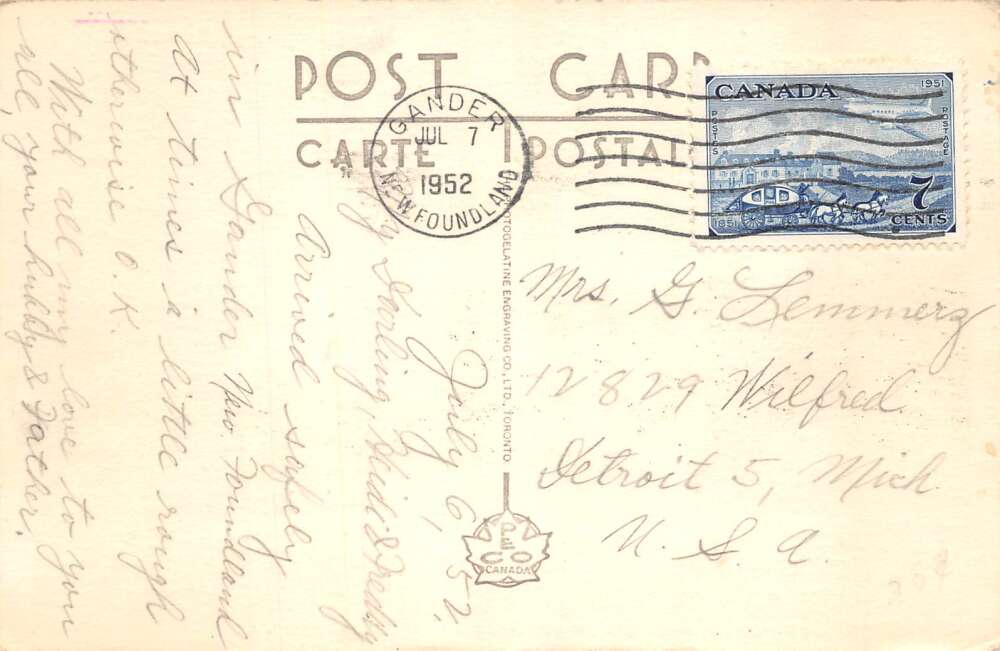 POST CARD
CARTE POSTALE
GANDER
JUL 7
1952
NEWFOUNDLAND
CANADA
1951
POSTES
POSTAGE
7
CENTS
1851
Mrs. G. Lemmerz
12829 Wilfred
Detroit 5, Mich.
U. S. A
PHOTOGELATINE ENGRAVING CO., LTD., TORONTO
CANADA
July 6, 52,
My Darling, Heidi & Freddy
Arrived safely
in Gander New Foundland
At times a little rough
otherwise O.K.
With all my love to you
all, your hubby & Father.